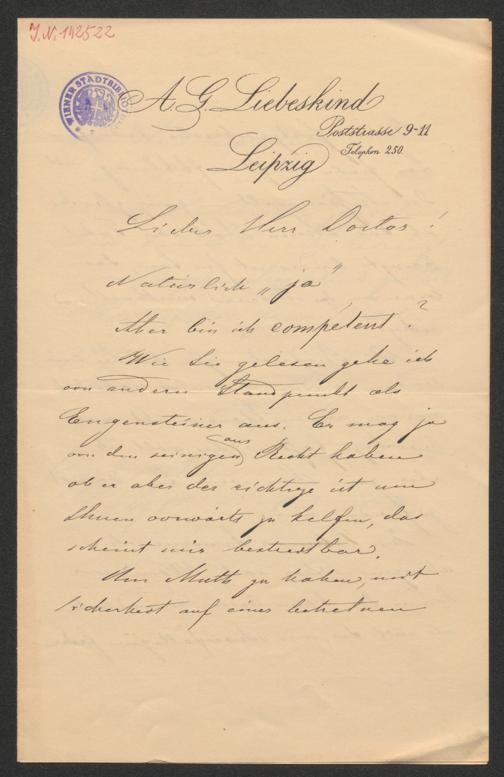 J.N. 142522
WIENER STADTBIBLIOTHEK
A. G. Liebeskind
Poststrasse 9-11
Telephon 250.
Leipzig
Lieber Herr Doctor!
Natürlich „ja“
Aber bin ich compétent?
Wie Sie gelesen gehe ich
von anderen Standpunkt als
Engensteiner aus. Er mag ja
von den seinigen aus Recht haben
ob er aber der richtige ist um
Ihnen vorwärts zu helfen, das
scheint mir bestreitbar.
Um Muth zu haben, mit
Sicherheit auf eines betretenen